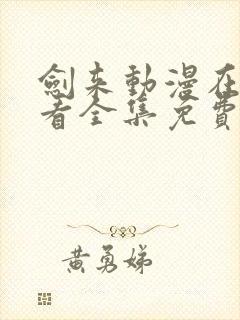 劍来動漫在
看全集免費
黃勇娣